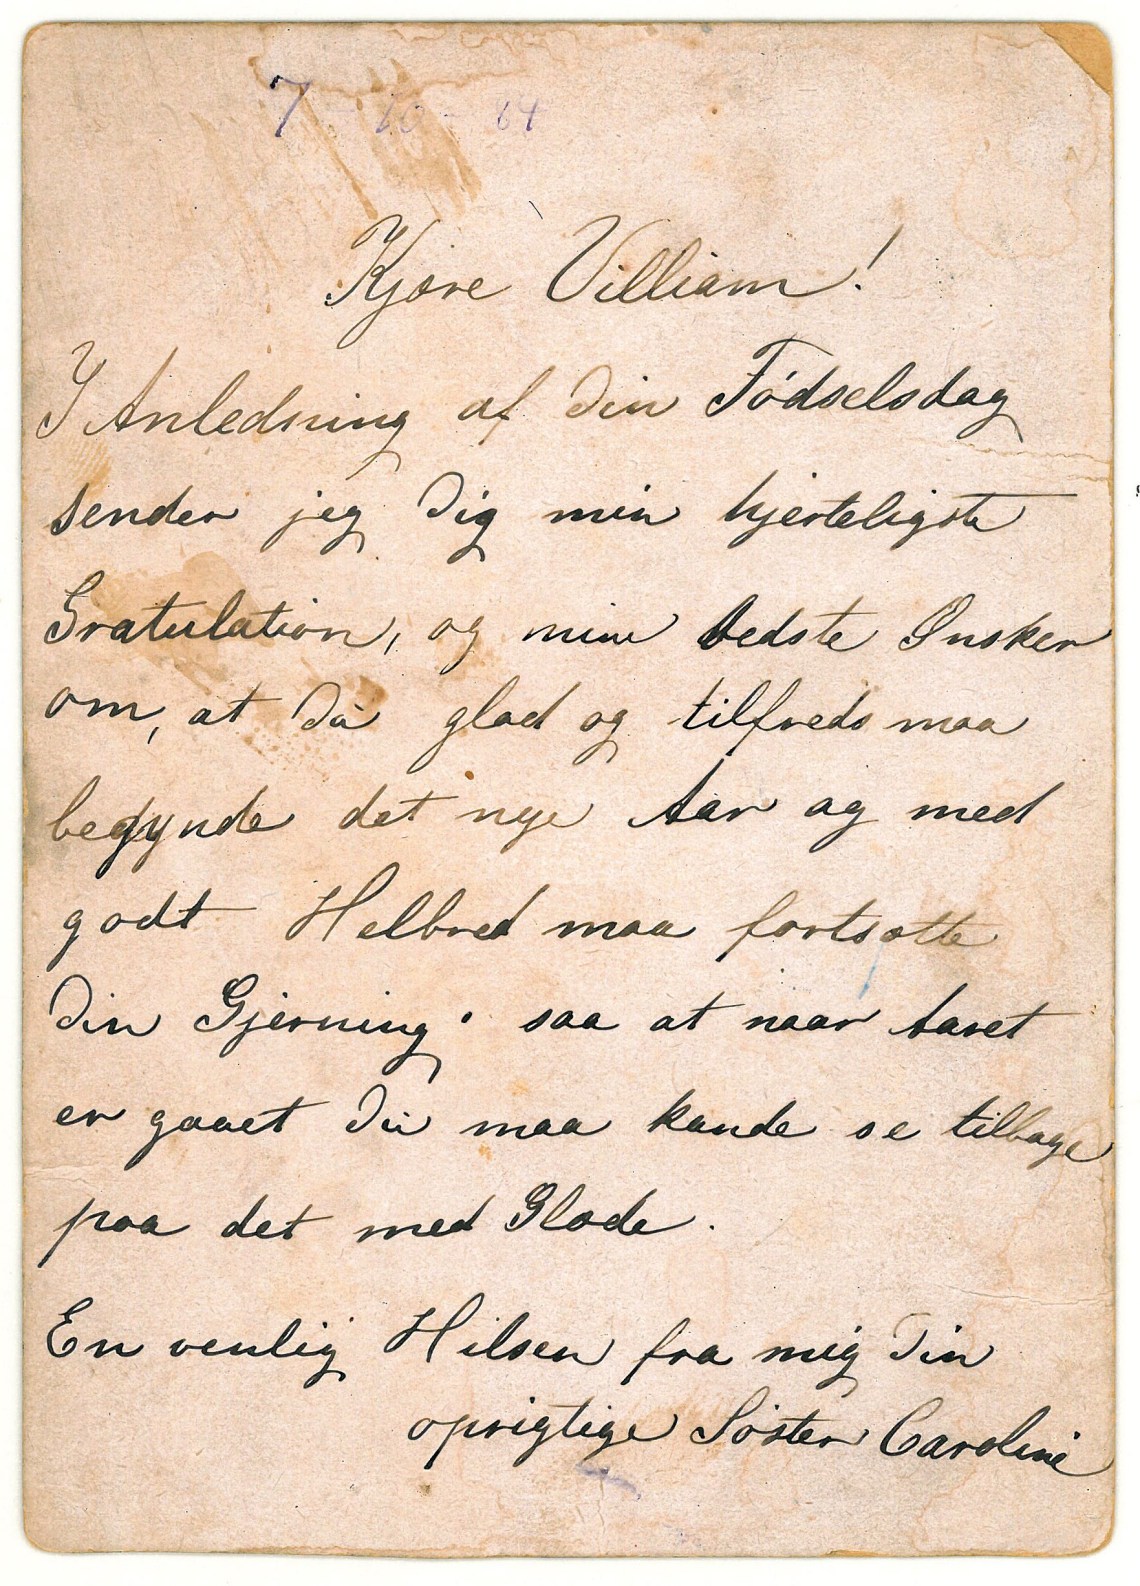 7 - 10 - 84
Kjære Villiam!
I Anledning af Din Födselsdag
sender jeg Dig min hjerteligste
Gratulation, og mine bedste Ønsker
om, at Du glad og tilfreds maa
begynde det nye Aar og med
godt Helbred maa fortsætte
Din Gjerning. saa at naar Aaret
er gaaet Du maa kunde se tilbage
paa det med Glæde.
En venlig Hilsen fra mig Din
oprigtige Söster Caroline